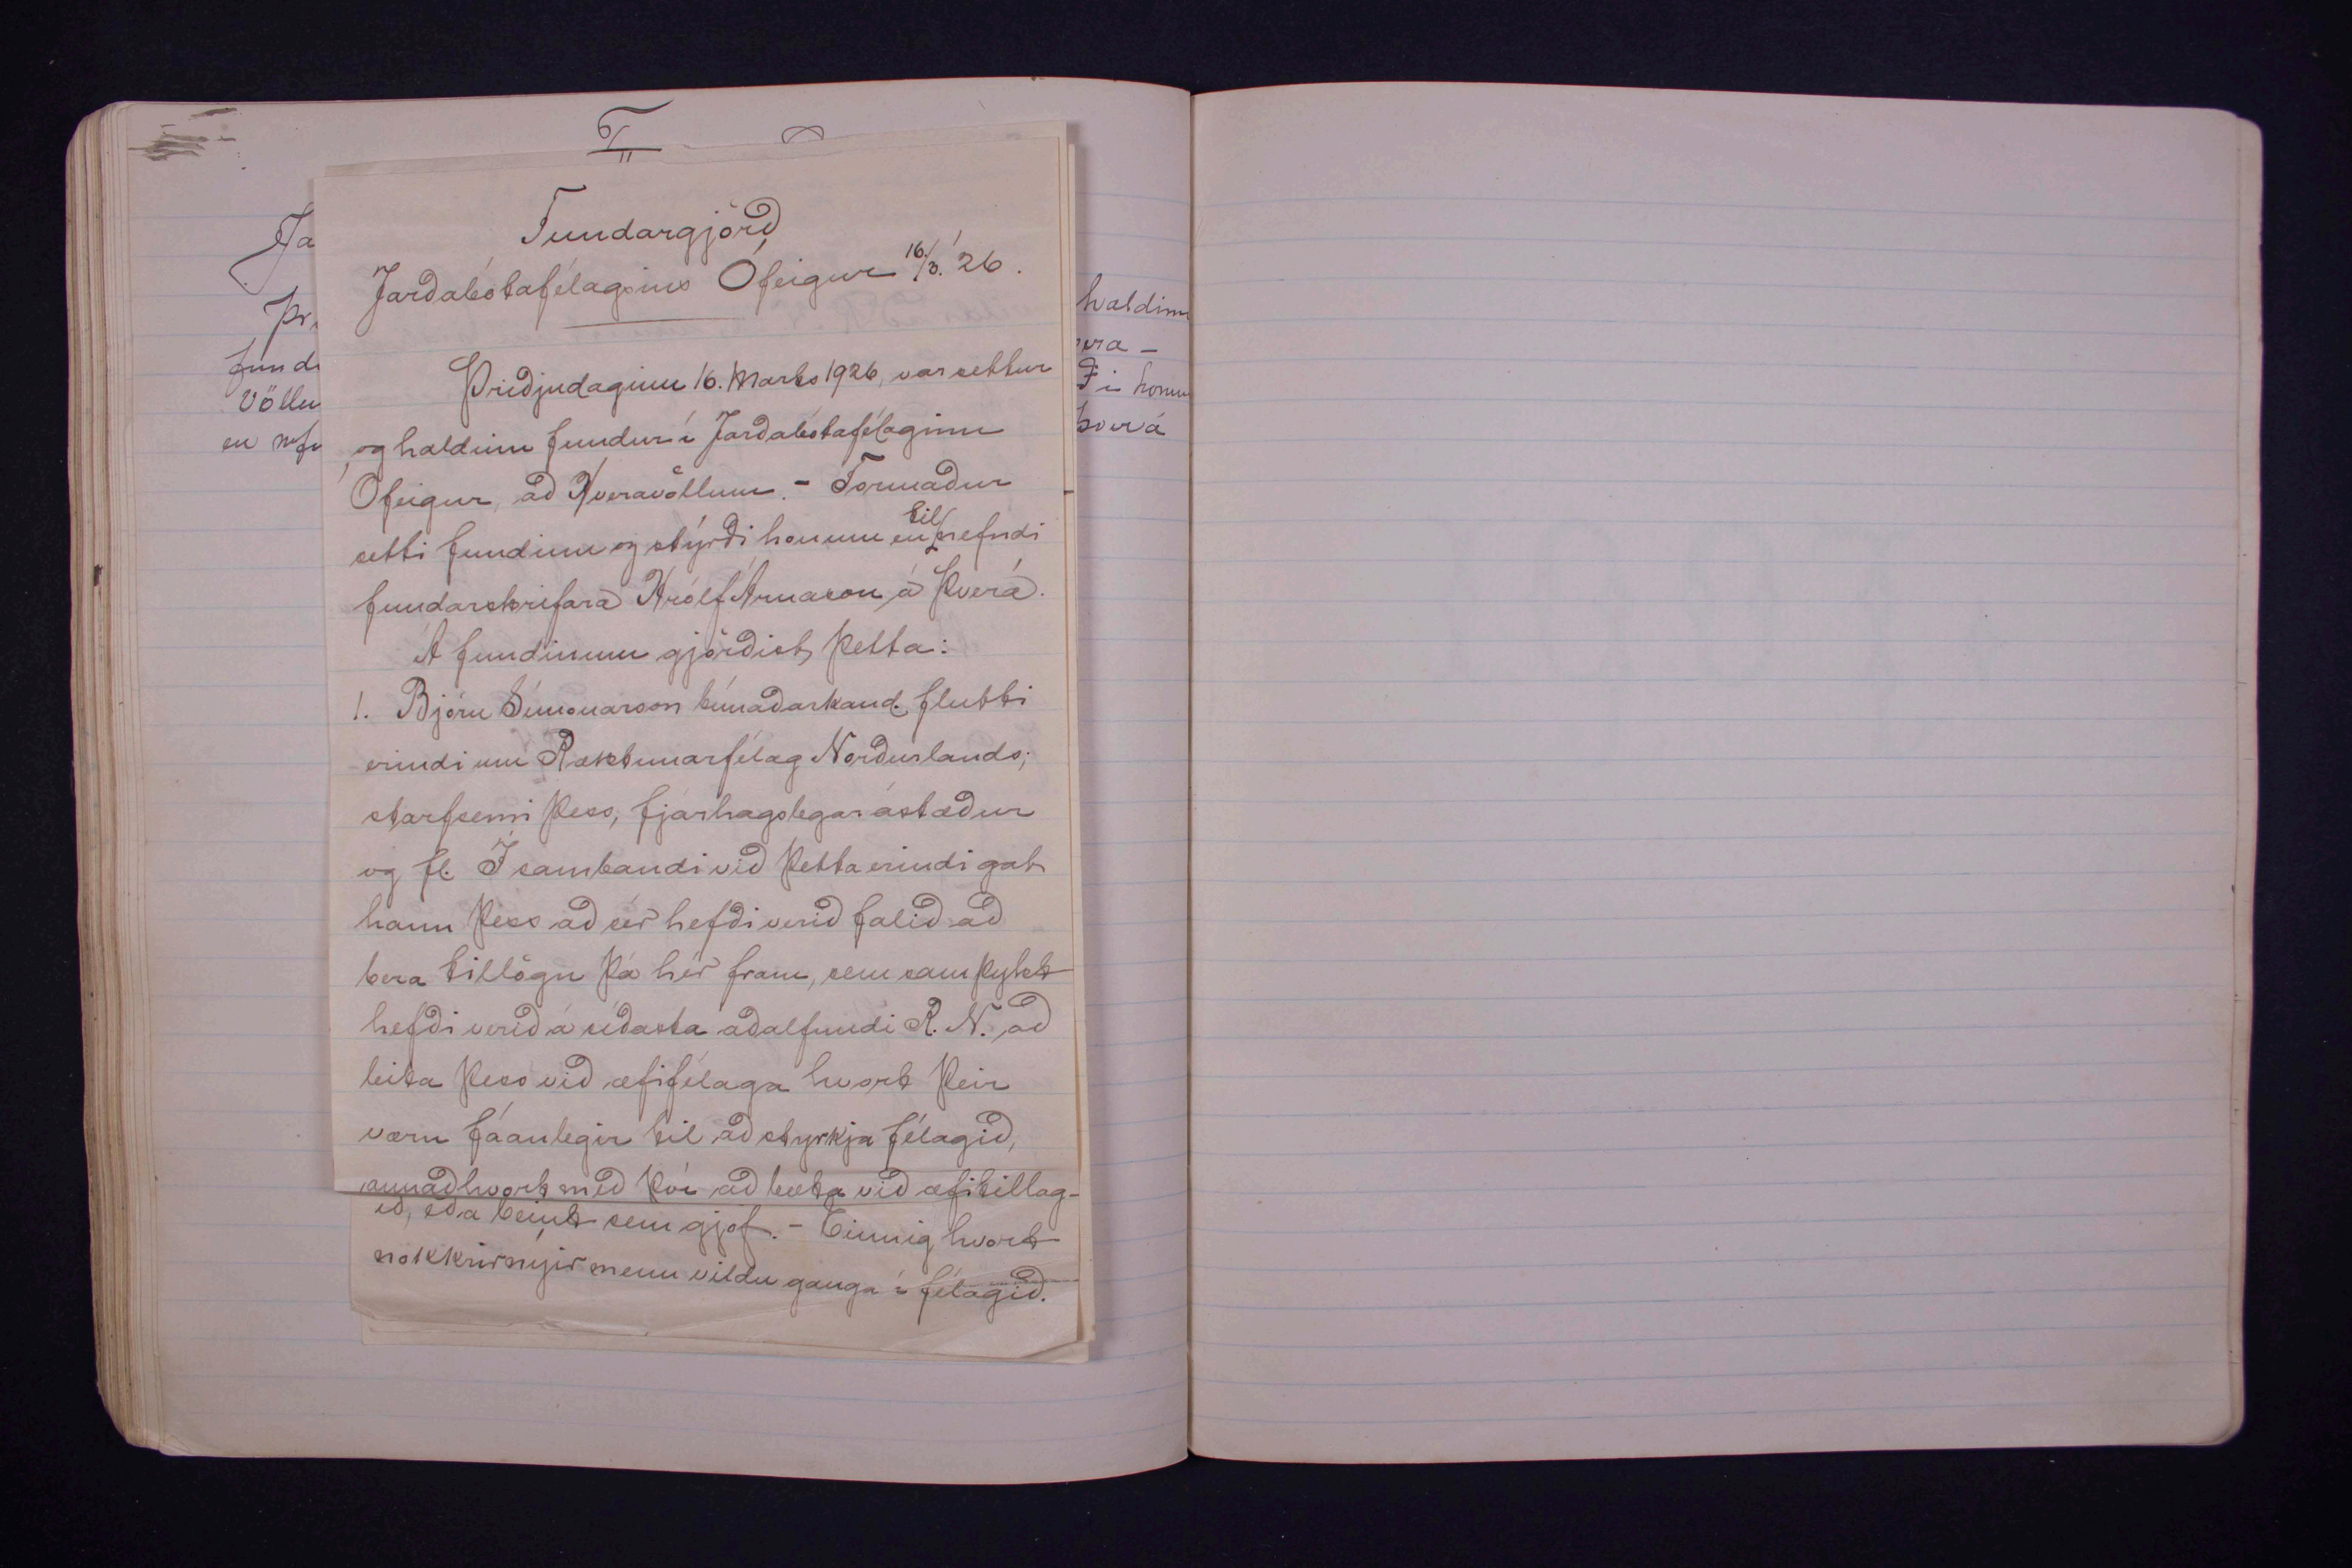 Fundargjörð
Jarðabótafélagsins Ófeigur 16/3. '26.
Þriðjudaginn 16. Marts 1926, var settur
og haldinn fundur í Jarðabótafélaginu
Ófeigur, að Hveravöllum. - Formaður
setti fundinn og stýrði honum en tilnefndi
fundarskrifara Hrólf Árnason á Þverá.
Á fundinum gjörðist þetta:
1. Björn Símonarson búnaðarkand. flutti
erindi um Ræktunarfélag Norðurlands;
starfsemi þess, fjárhagslegar ástæður
og fl. Í sambandi við þetta erindi gat
hann þess að sér hefði verið falið að
bera tillögu þá hér fram, sem samþykt
hefði verið á síðasta aðalfundi R. N. að
leita þess við æfifélaga hvort þeir
væru fáanlegir til að styrkja félagið,
annaðhvort með því að bæta við æfitillag-
ið, eða beint sem gjöf. - Einnig hvort
nokkrir nýir menn vildu ganga í félagið.
Ja
Þr
fundi
Völlu
en nefn
haldinn
vera -
ði honu
Þverá